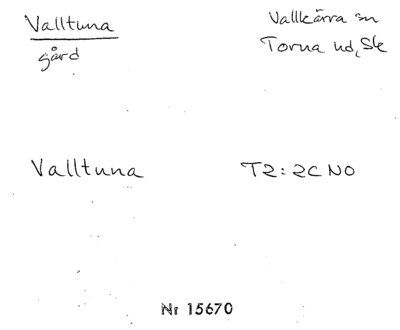 Valltuna
gård
Vallkärra sn
Torna hd, Sk
Valltuna T2:2C NO
Nr 15670